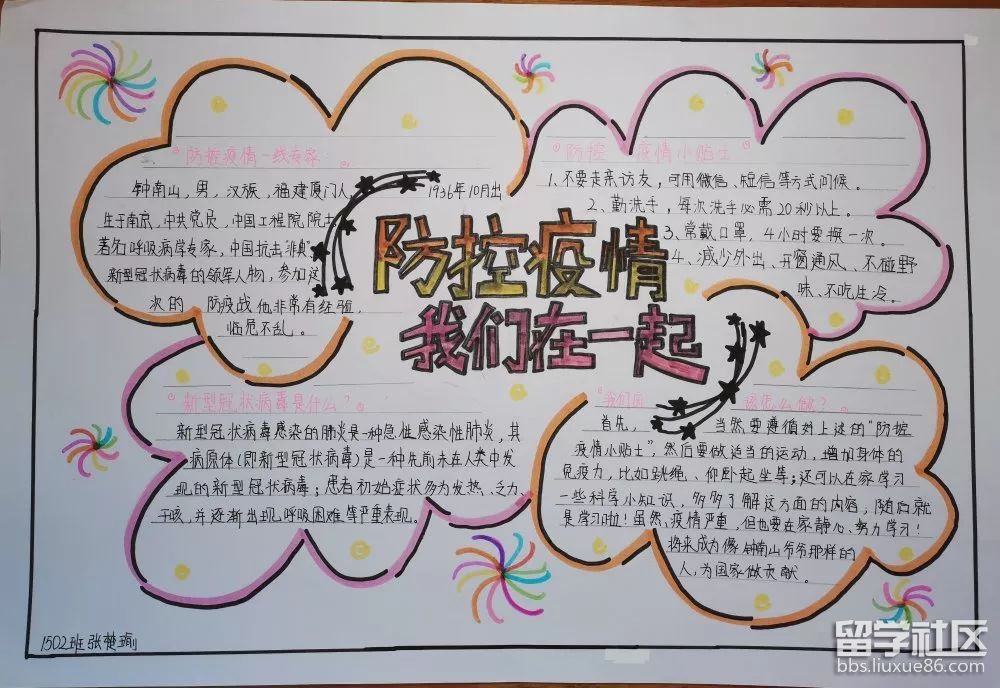 防控疫情一线专家
钟南山，男，汉族，福建厦门人，1936年10月出
生于南京，中共党员，中国工程院院士
著名呼吸病学专家，中国抗击"非典"
新型冠状病毒的领军人物，参加这
次的 防疫战他非常有经验，
临危不乱。
防控疫情
我们在一起
防控 疫情小贴士
1、不要走亲访友，可用微信、短信等方式问候。
2、勤洗手，每次洗手必需20秒以上。
3、常戴口罩，4小时要换一次。
4、减少外出、开窗通风、不碰野
味、不吃生冷。
新型冠状病毒是什么？
新型冠状病毒感染的肺炎是一种急性感染性肺炎，其
病原体（即新型冠状病毒）是一种先前未在人类中发
现的新型冠状病毒；患者初始症状多为发热、乏力、
干咳，并逐渐出现呼吸困难等严重表现。
"我们 该怎么做？
首先， 当然要遵值对上述的"防控
疫情小贴士"，然后要做适当的运动，增加身体的
免疫力，比如跳绳、仰卧起坐等；还可以在家学习
一些科学小知识，多多了解这方面的内容，随后就
是学习啦！虽然、疫情严重，但也要在家静心、努力学习！
将来成为像钟南山爷爷那样的
人，为国家做贡献。
1502班张楚瑜
留学社区
bbs.liuxue86.com